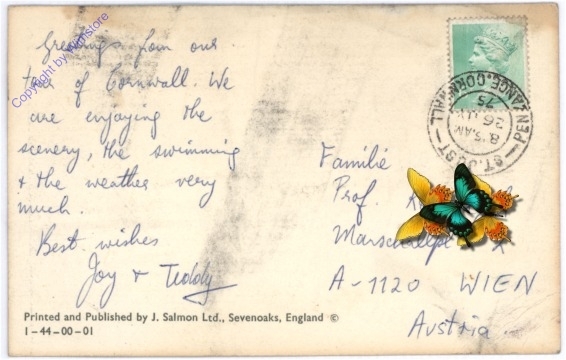 Greetings from our
tour of Cornwall. We
are enjoying the
scenery, the swimming
& the weather very
much.
Best wishes
Joy & Teddy
Printed and Published by J. Salmon Ltd., Sevenoaks, England ©
1-44-00-01
Copyright by
ST. JUST PENZANCE. CORNWALL
8.15 AM
26
75
Familie
Prof.
A-1120 WIEN
Austria.